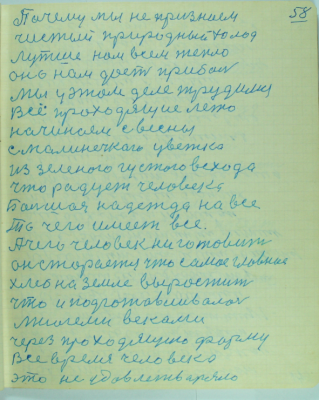 58
Почему мы не признаем
чистый природный холод
Лутше нам всем тепло
оно нам дает прибал
мы у этом деле трудимся
Всё проходящие лето
начинаем с весны
с малинечкого цветка
из зеленого густого всхода
что радует человека
Большая надежда на все
То чего имеет все.
А чего человек ни готовит
он старается что самое главное
хлеб на земле выростит
что и подготавливалось
многеми веками
через проходящию форму
Все время человека
это не удовлетваряло